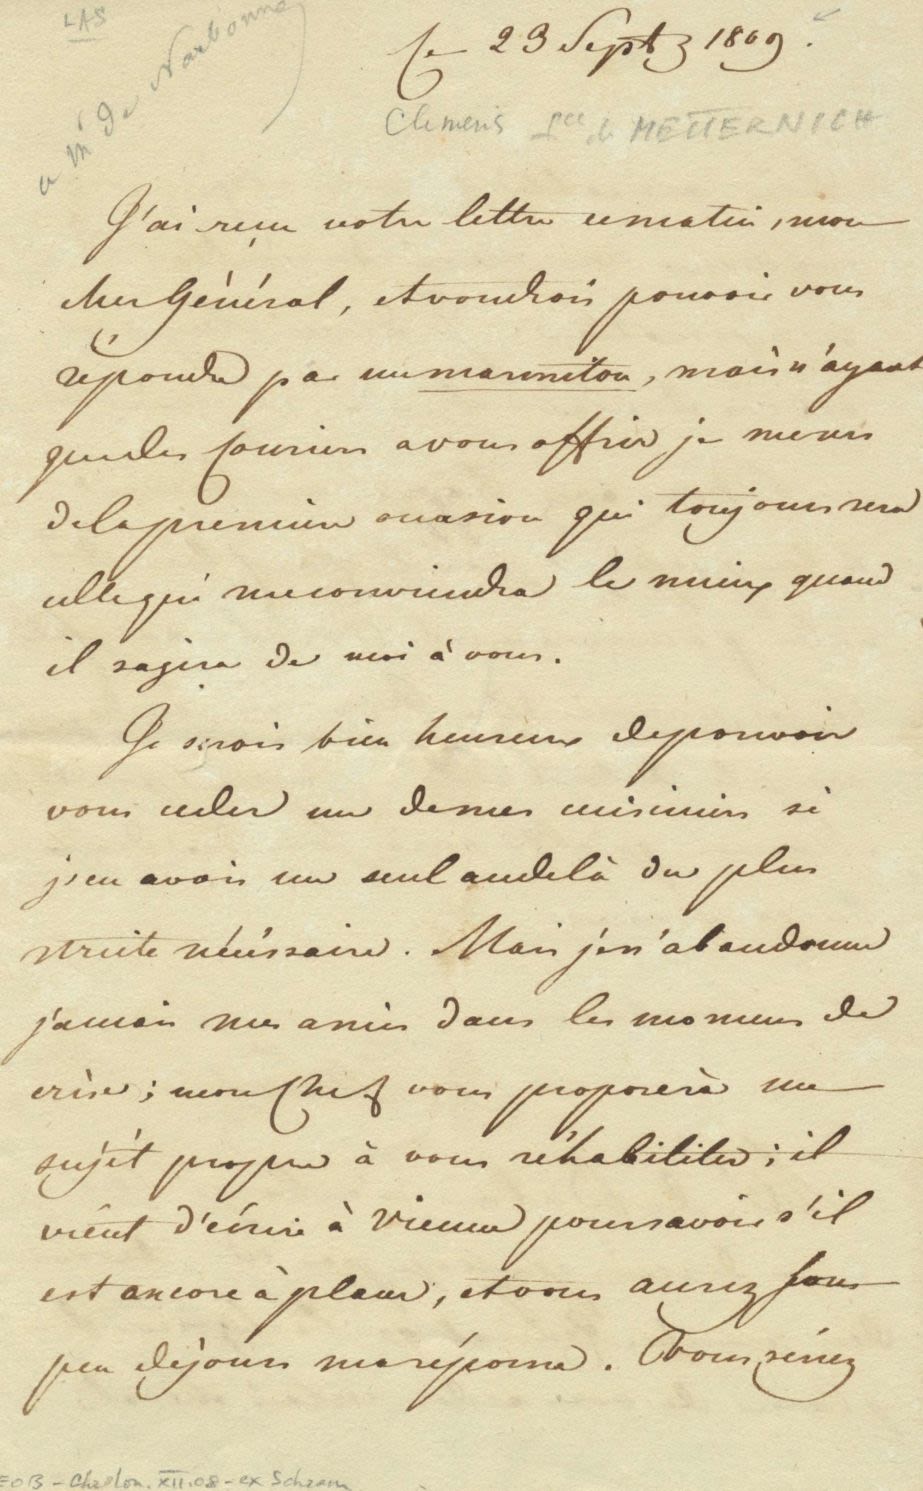 LAS
a Mr de Narbonne
Ce 23 Septb 1809.
Clemens Pce de METTERNICH
J'ai reçu votre lettre ce matin, mon
cher Général, et voudrois pouvoir vous
répondre par un marmiton, mais n'ayant
que des Couriers a vous offrir je me sers
de la premiere occasion qui toujours sera
celle qui me conviendra le mieux quand
il sagira de moi à vous.
Je serois bien heureux de pouvoir
vous ceder un de mes cuisiniers si
j'en avois un seul au delà du plus
stricte nécéssaire. Mais je n'abandonne
jamais mes amis dans les momens de
crise; mon Chef vous proposera un
sujét propre à vous réhabiliter; il
vient d'écrire à Vienne pour savoir s'il
est ancore à placer, et vous aurez sous
peu de jours ma réponse. Vous
- Chaalon. XII.08 - ex Schramm